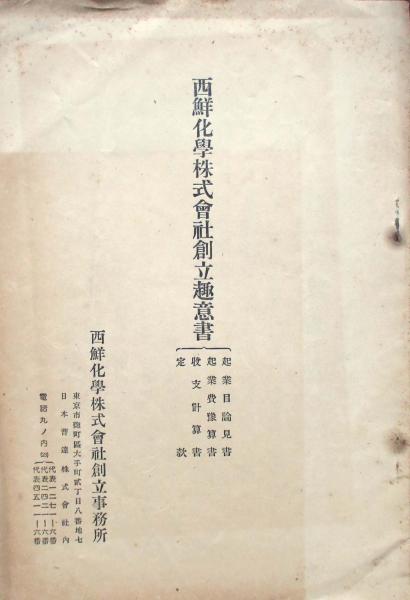 西鮮化學株式會社創立趣意書
起業目論見書
起業費豫算書
收支計算書
定款
西鮮化學株式會社創立事務所
東京市麹町區大手町貳丁目八番地七
日本曹達株式會社內
電話丸ノ內(23)
代表一二七一―六番
代表二四二一―六番
代表四五一一―六番